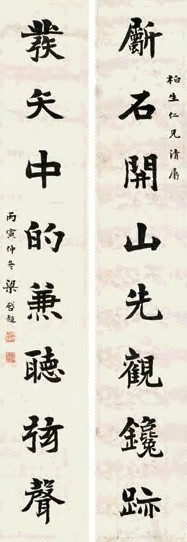 柏生仁兄清屬
斲石開山先觀鑱跡
發矢中的兼聽弦聲
丙寅仲冬 梁啓超